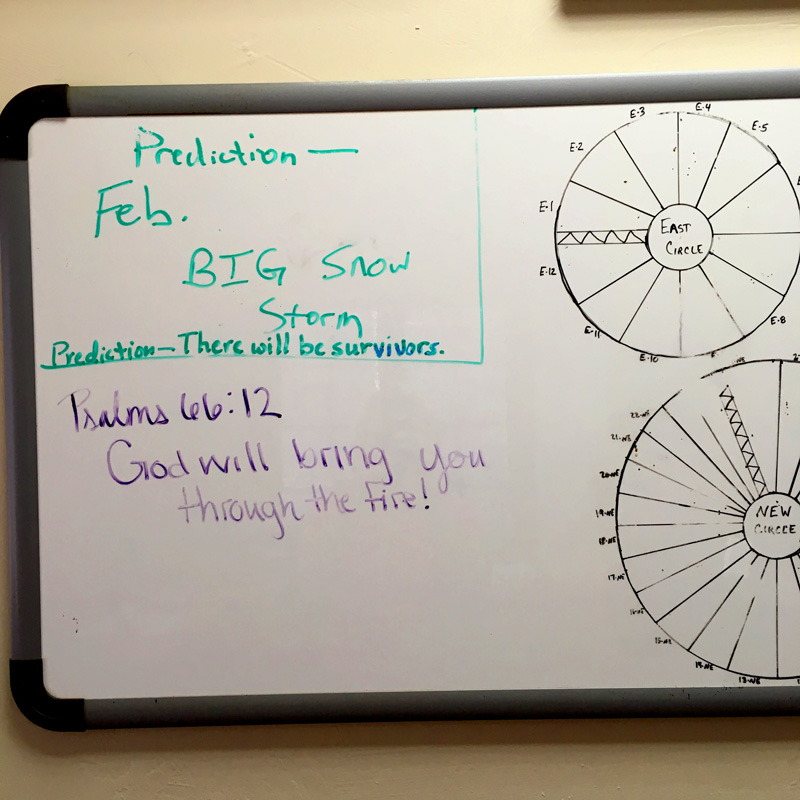 Prediction —
Feb.
BIG Snow
Storm
Prediction — There will be survivors.
Psalms 66:12
God will bring you
through the Fire!
E-1
E-2
E-3
E-4
E-5
E-8
E-10
E-11
E-12
EAST
CIRCLE
22-NE
21-NE
20-NE
19-NE
18-NE
17-NE
15-NE
14-NE
13-NE
NEW
CIRCLE